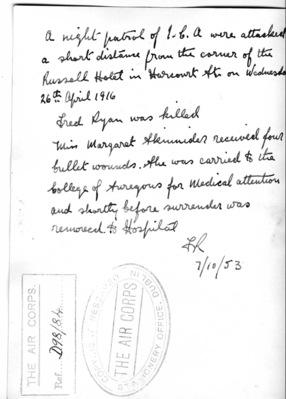 A night patrol of I.C.A were attacked
a short distance from the corner of the
Russell Hotel in Harcourt St. on Wednesday
26th April 1916
Fred Ryan was killed
Miss Margaret Skinnider received four
bullet wounds. She was carried to the
College of Surgeons for Medical attention
and shortly before surrender was
removed to Hospital
7/10/53
THE AIR CORPS.
Ref. D98/84
COPYRIGHT RESERVED
THE AIR CORPS
STATIONERY OFFICE DUBLIN